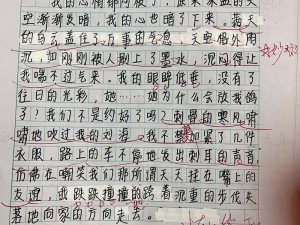 我的心情都两极了，原本湛蓝的天
空渐渐变暗，我的心也暗了下来。满天
的乌云盖住了万事的气息，天空格外阴
沉，如刚刚被人刷上了墨水，沉闷得让
我喘不过气来。我的眼睛低垂，没有了
往日的光彩，她……她为什么会放我鸽
子？我们不是约好了吗？刺骨的寒风哨
哨地吹过我的刘海，我不禁加紧了几件
衣服，路上的车不停地发出刺耳的声音，
仿佛在嘲笑我们那所谓天天挂在嘴上的
友谊，我跌跌撞撞的跨着沉重的步伐失
落地向家的方向走去。